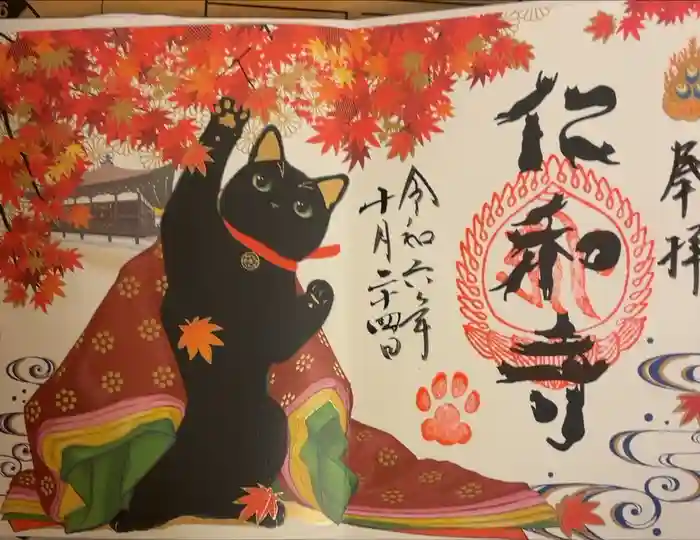 奉拝
仁和寺
令和六年
十月二十四日